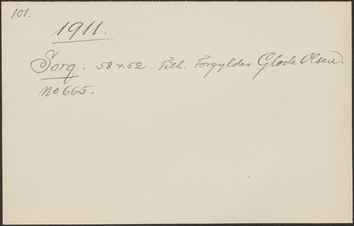 101.
1911.
Sorg. 58 x 52. Bel. Forgylder Glode Olsen.
No 665.